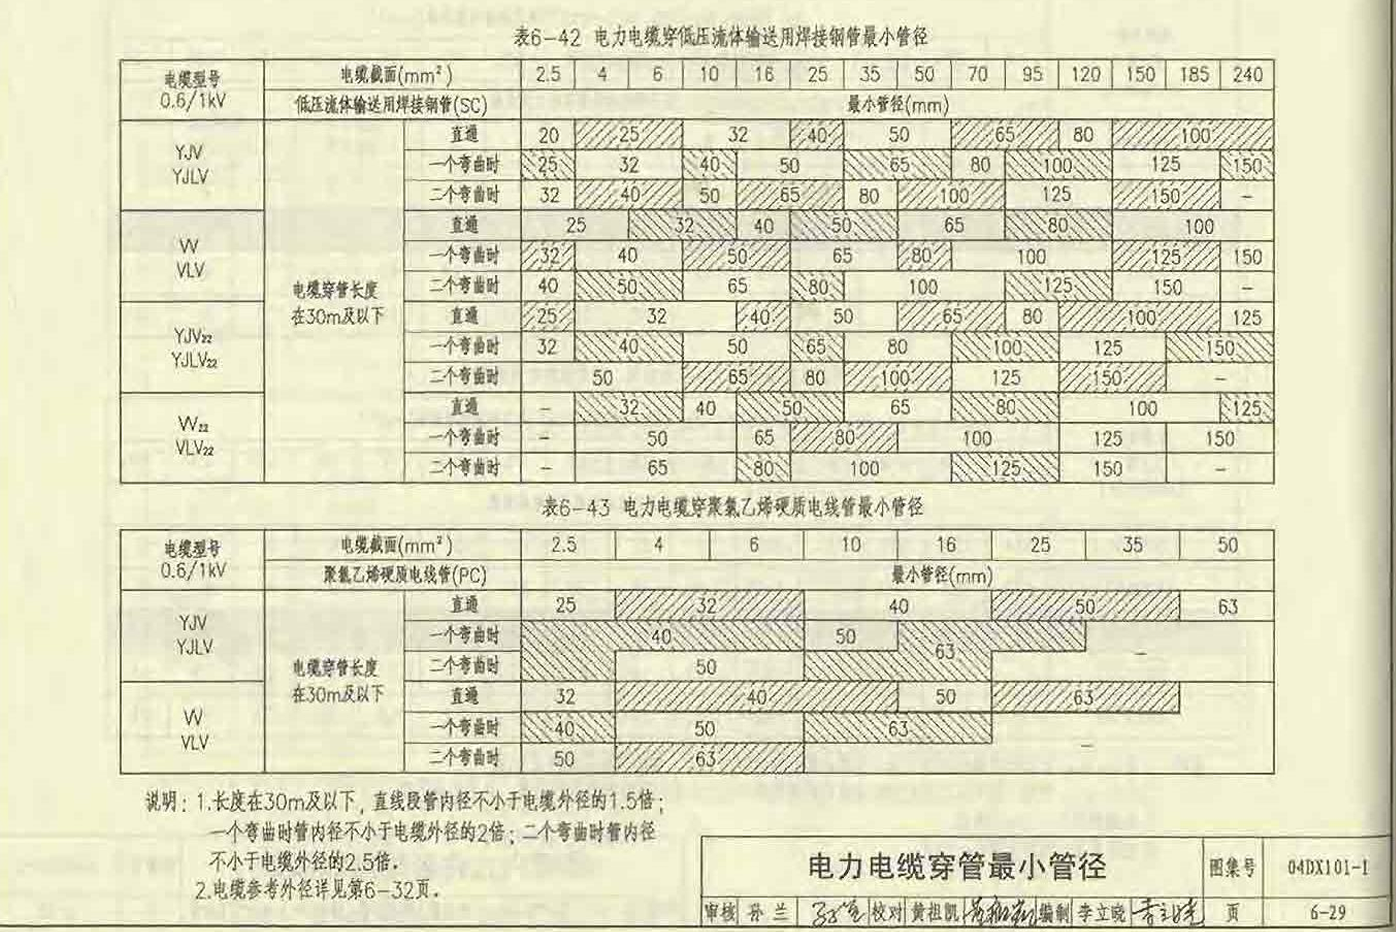 表6-42 电力电缆穿低压流体输送用焊接钢管最小管径
电缆型号 0.6/1kV 电缆截面(mm²) 2.5 4 6 10 16 25 35 50 70 95 120 150 185 240
低压流体输送用焊接钢管(SC) 最小管径(mm)
YJV YJLV 电缆穿管长度在30m及以下 直通 20 25 32 40 50 65 80 100
一个弯曲时 25 32 40 50 65 80 100 125 150
二个弯曲时 32 40 50 65 80 100 125 150 -
VV VLV 直通 25 32 40 50 65 80 100
一个弯曲时 32 40 50 65 80 100 125 150
二个弯曲时 40 50 65 80 100 125 150 -
YJV₂₂ YJLV₂₂ 直通 25 32 40 50 65 80 100 125
一个弯曲时 32 40 50 65 80 100 125 150
二个弯曲时 50 65 80 100 125 150 -
VV₂₂ VLV₂₂ 直通 - 32 40 50 65 80 100 125
一个弯曲时 - 50 65 80 100 125 150
二个弯曲时 - 65 80 100 125 150 -
表6-43 电力电缆穿聚氯乙烯硬质电线管最小管径
电缆型号 0.6/1kV 电缆截面(mm²) 2.5 4 6 10 16 25 35 50
聚氯乙烯硬质电线管(PC) 最小管径(mm)
YJV YJLV 电缆穿管长度在30m及以下 直通 25 32 40 50 63
一个弯曲时 40 50 63 -
二个弯曲时 50
VV VLV 直通 32 40 50 63
一个弯曲时 40 50 63 -
二个弯曲时 50 63
说明：1.长度在30m及以下，直线段管内径不小于电缆外径的1.5倍；
一个弯曲时管内径不小于电缆外径的2倍；二个弯曲时管内径
不小于电缆外径的2.5倍．
2.电缆参考外径详见第6-32页．
电力电缆穿管最小管径 图集号 04DX101-1
审核 孙兰 校对 黄祖凯 编制 李立晓 李立晓 页 6-29